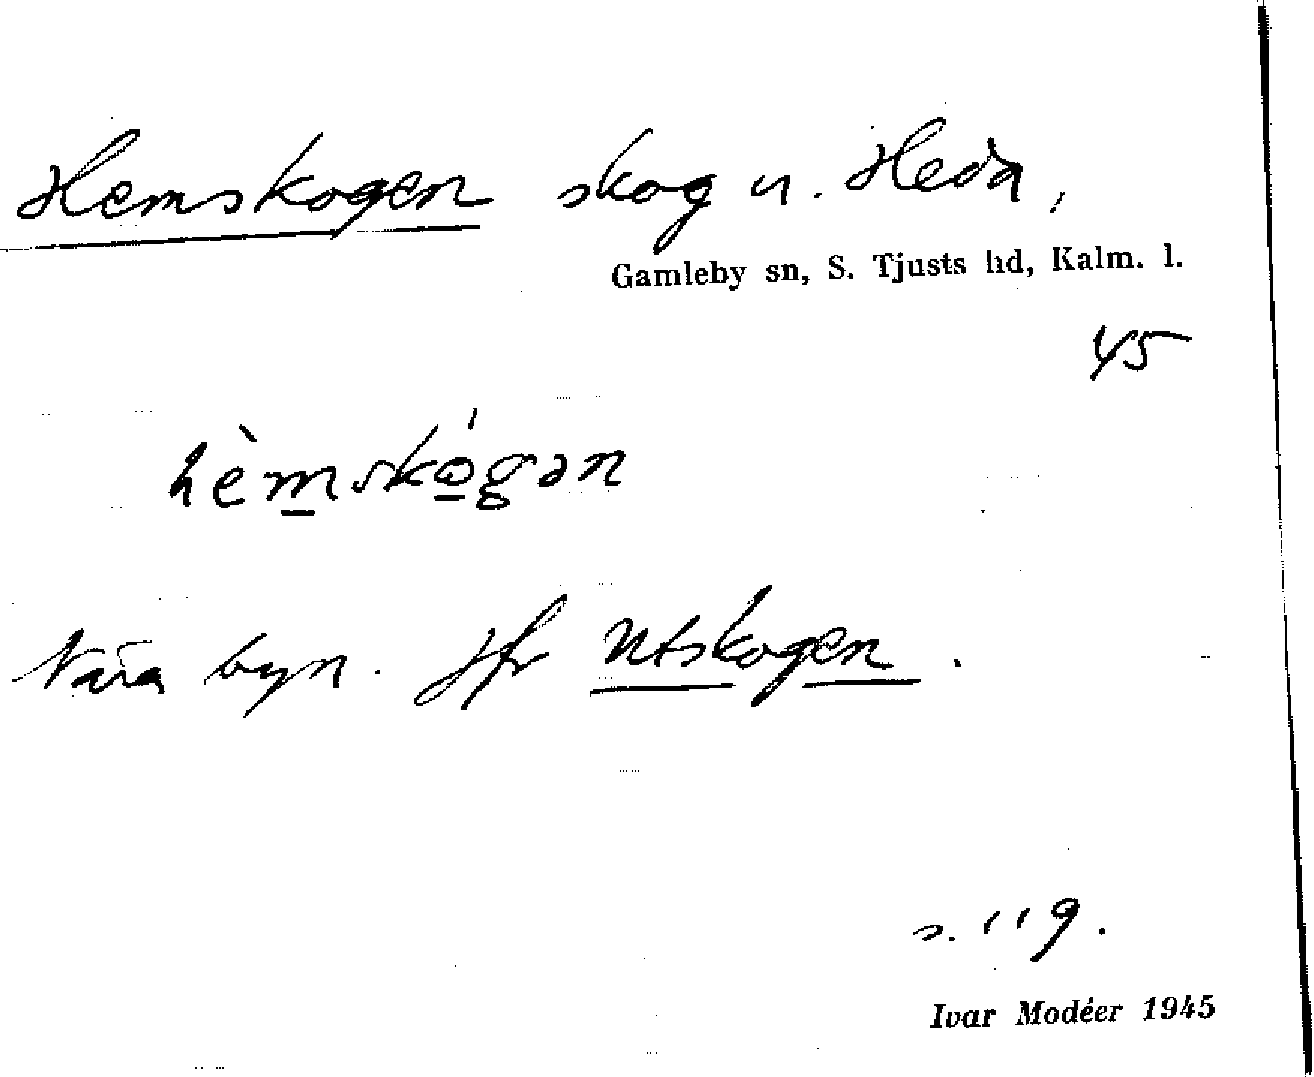 Hemskogen skog u. Heda,
Gamleby sn, S. Tjusts hd, Kalm. l.
45
hèmskó̠gən
Nära byn. Jfr Utskogen.
s. 119.
Ivar Modéer 1945